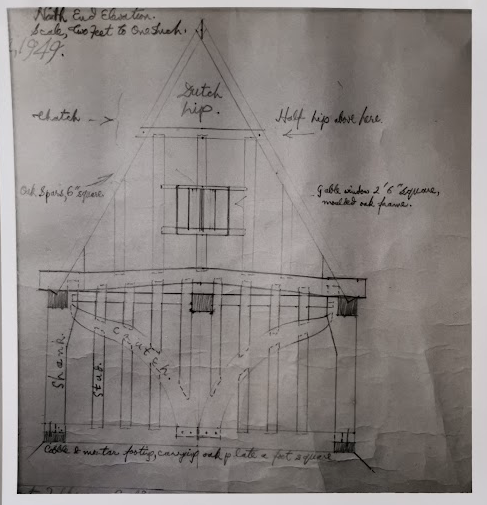 North End Elevation.
Scale, Two Feet to One Inch.
1949.
Dutch
hip.
Thatch
Half hip above here.
Oak Spars, 6" square.
Gable window 2' 6" square,
moulded oak frame.
Shank.
Stub.
Crutch.
Cobble & mortar footing, carrying oak plate a foot square